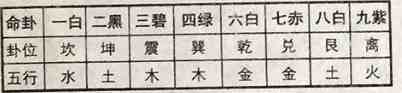 命卦 一白 二黑 三碧 四绿 六白 七赤 八白 九紫
卦位 坎 坤 震 巽 乾 兑 艮 离
五行 水 土 木 木 金 金 土 火